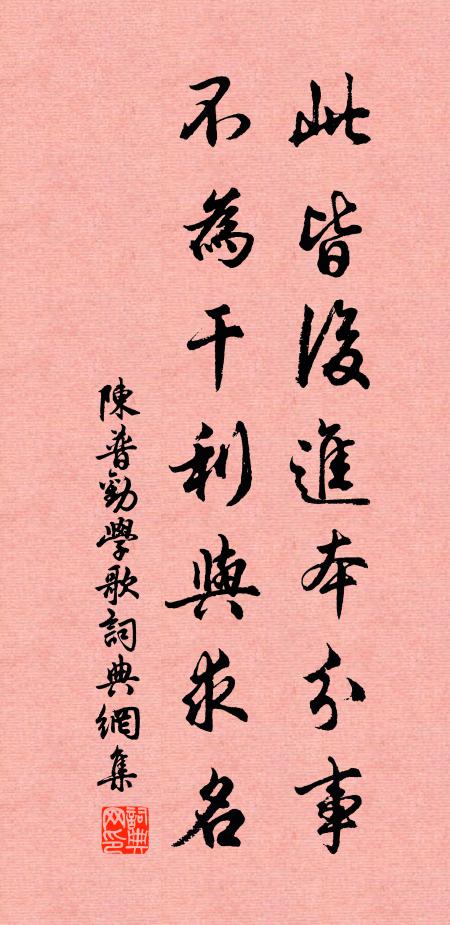 此皆後進本分事
不為干利與求名
陳普勸學歌詞典網集
詞典网印